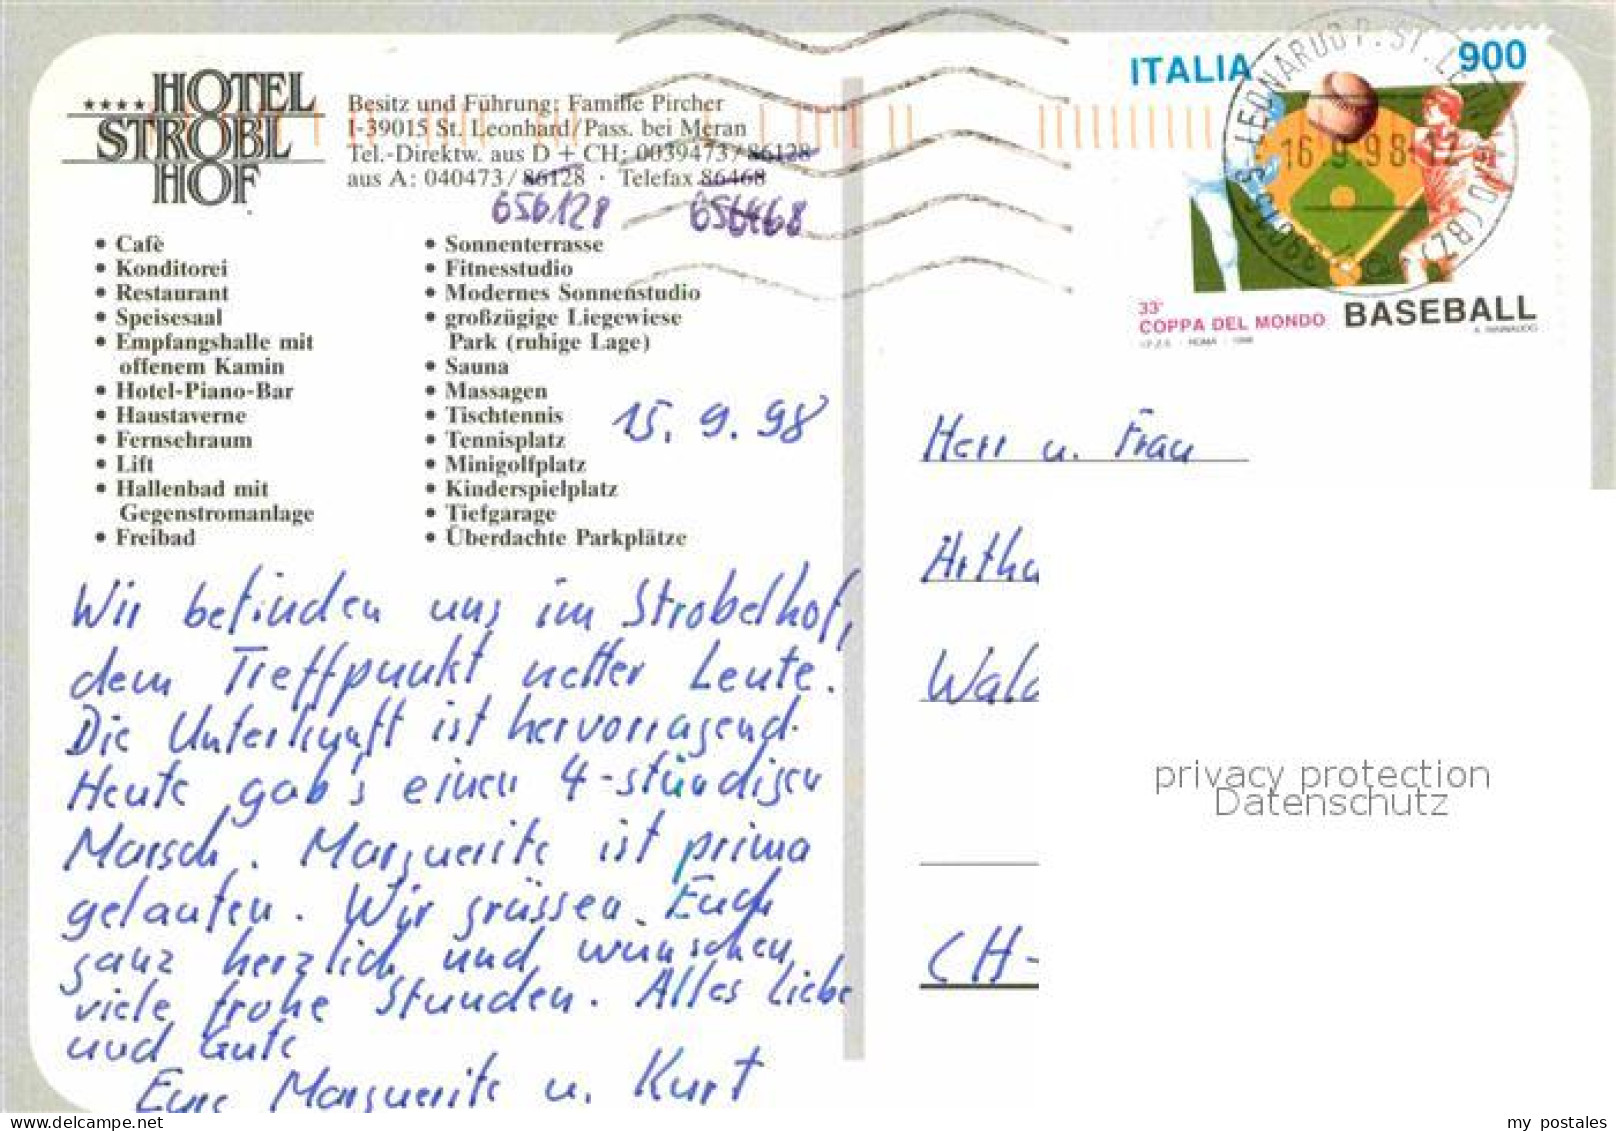 ****HOTEL
STROBL
HOF
Besitz und Führung: Familie Pircher
I-39015 St. Leonhard/Pass. bei Meran
Tel.-Direktw. aus D + CH: 0039473/86128
aus A: 040473/86128 · Telefax 86468
656128 656468
• Cafè
• Konditorei
• Restaurant
• Speisesaal
• Empfangshalle mit
offenem Kamin
• Hotel-Piano-Bar
• Haustaverne
• Fernsehraum
• Lift
• Hallenbad mit
Gegenstromanlage
• Freibad
• Sonnenterrasse
• Fitnesstudio
• Modernes Sonnenstudio
• großzügige Liegewiese
Park (ruhige Lage)
• Sauna
• Massagen
• Tischtennis
• Tennisplatz
• Minigolfplatz
• Kinderspielplatz
• Tiefgarage
• Überdachte Parkplätze
15. 9. 98
Wir befinden uns im Strobelhof,
dem Treffpunkt netter Leute.
Die Unterkunft ist hervorragend.
Heute gab's einen 4-stündigen
Marsch. Marguerite ist prima
gelaufen. Wir grüssen Euch
ganz herzlich und wünschen
viele frohe Stunden. Alles Liebe
und Gute
Eure Marguerite u. Kurt
ITALIA 900
16.9.98-12
39015 S. LEONARDO P. ST. LE
(BZ)
33ª
COPPA DEL MONDO BASEBALL
I.P.Z.S. - ROMA - 1998
Herr u. Frau
Arthu
Wald
CH-
privacy protection
Datenschutz
my postales